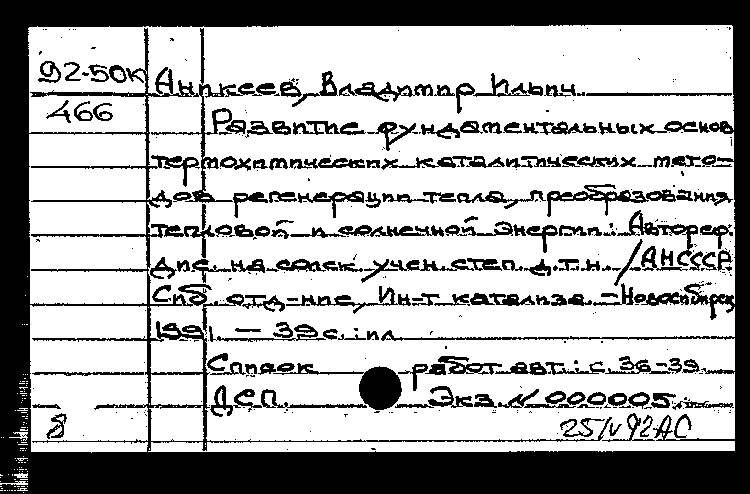 92-50к Аникеев, Владимир Ильич
466 Развитие фундаментальных основ
термохимических каталитических мето-
дов регенерации тепла, преобразования
тепловой и солнечной энергии: Автореф.
дис. на соиск. учен. степ. д.т.н. / АН СССР
Сиб. отд-ние, Ин-т катализа. - Новосибирск
1991. - 39 с.: ил
Список работ авт.: с. 36-39.
ДСП. Экз. N 000005.
8 25/V 92 АС